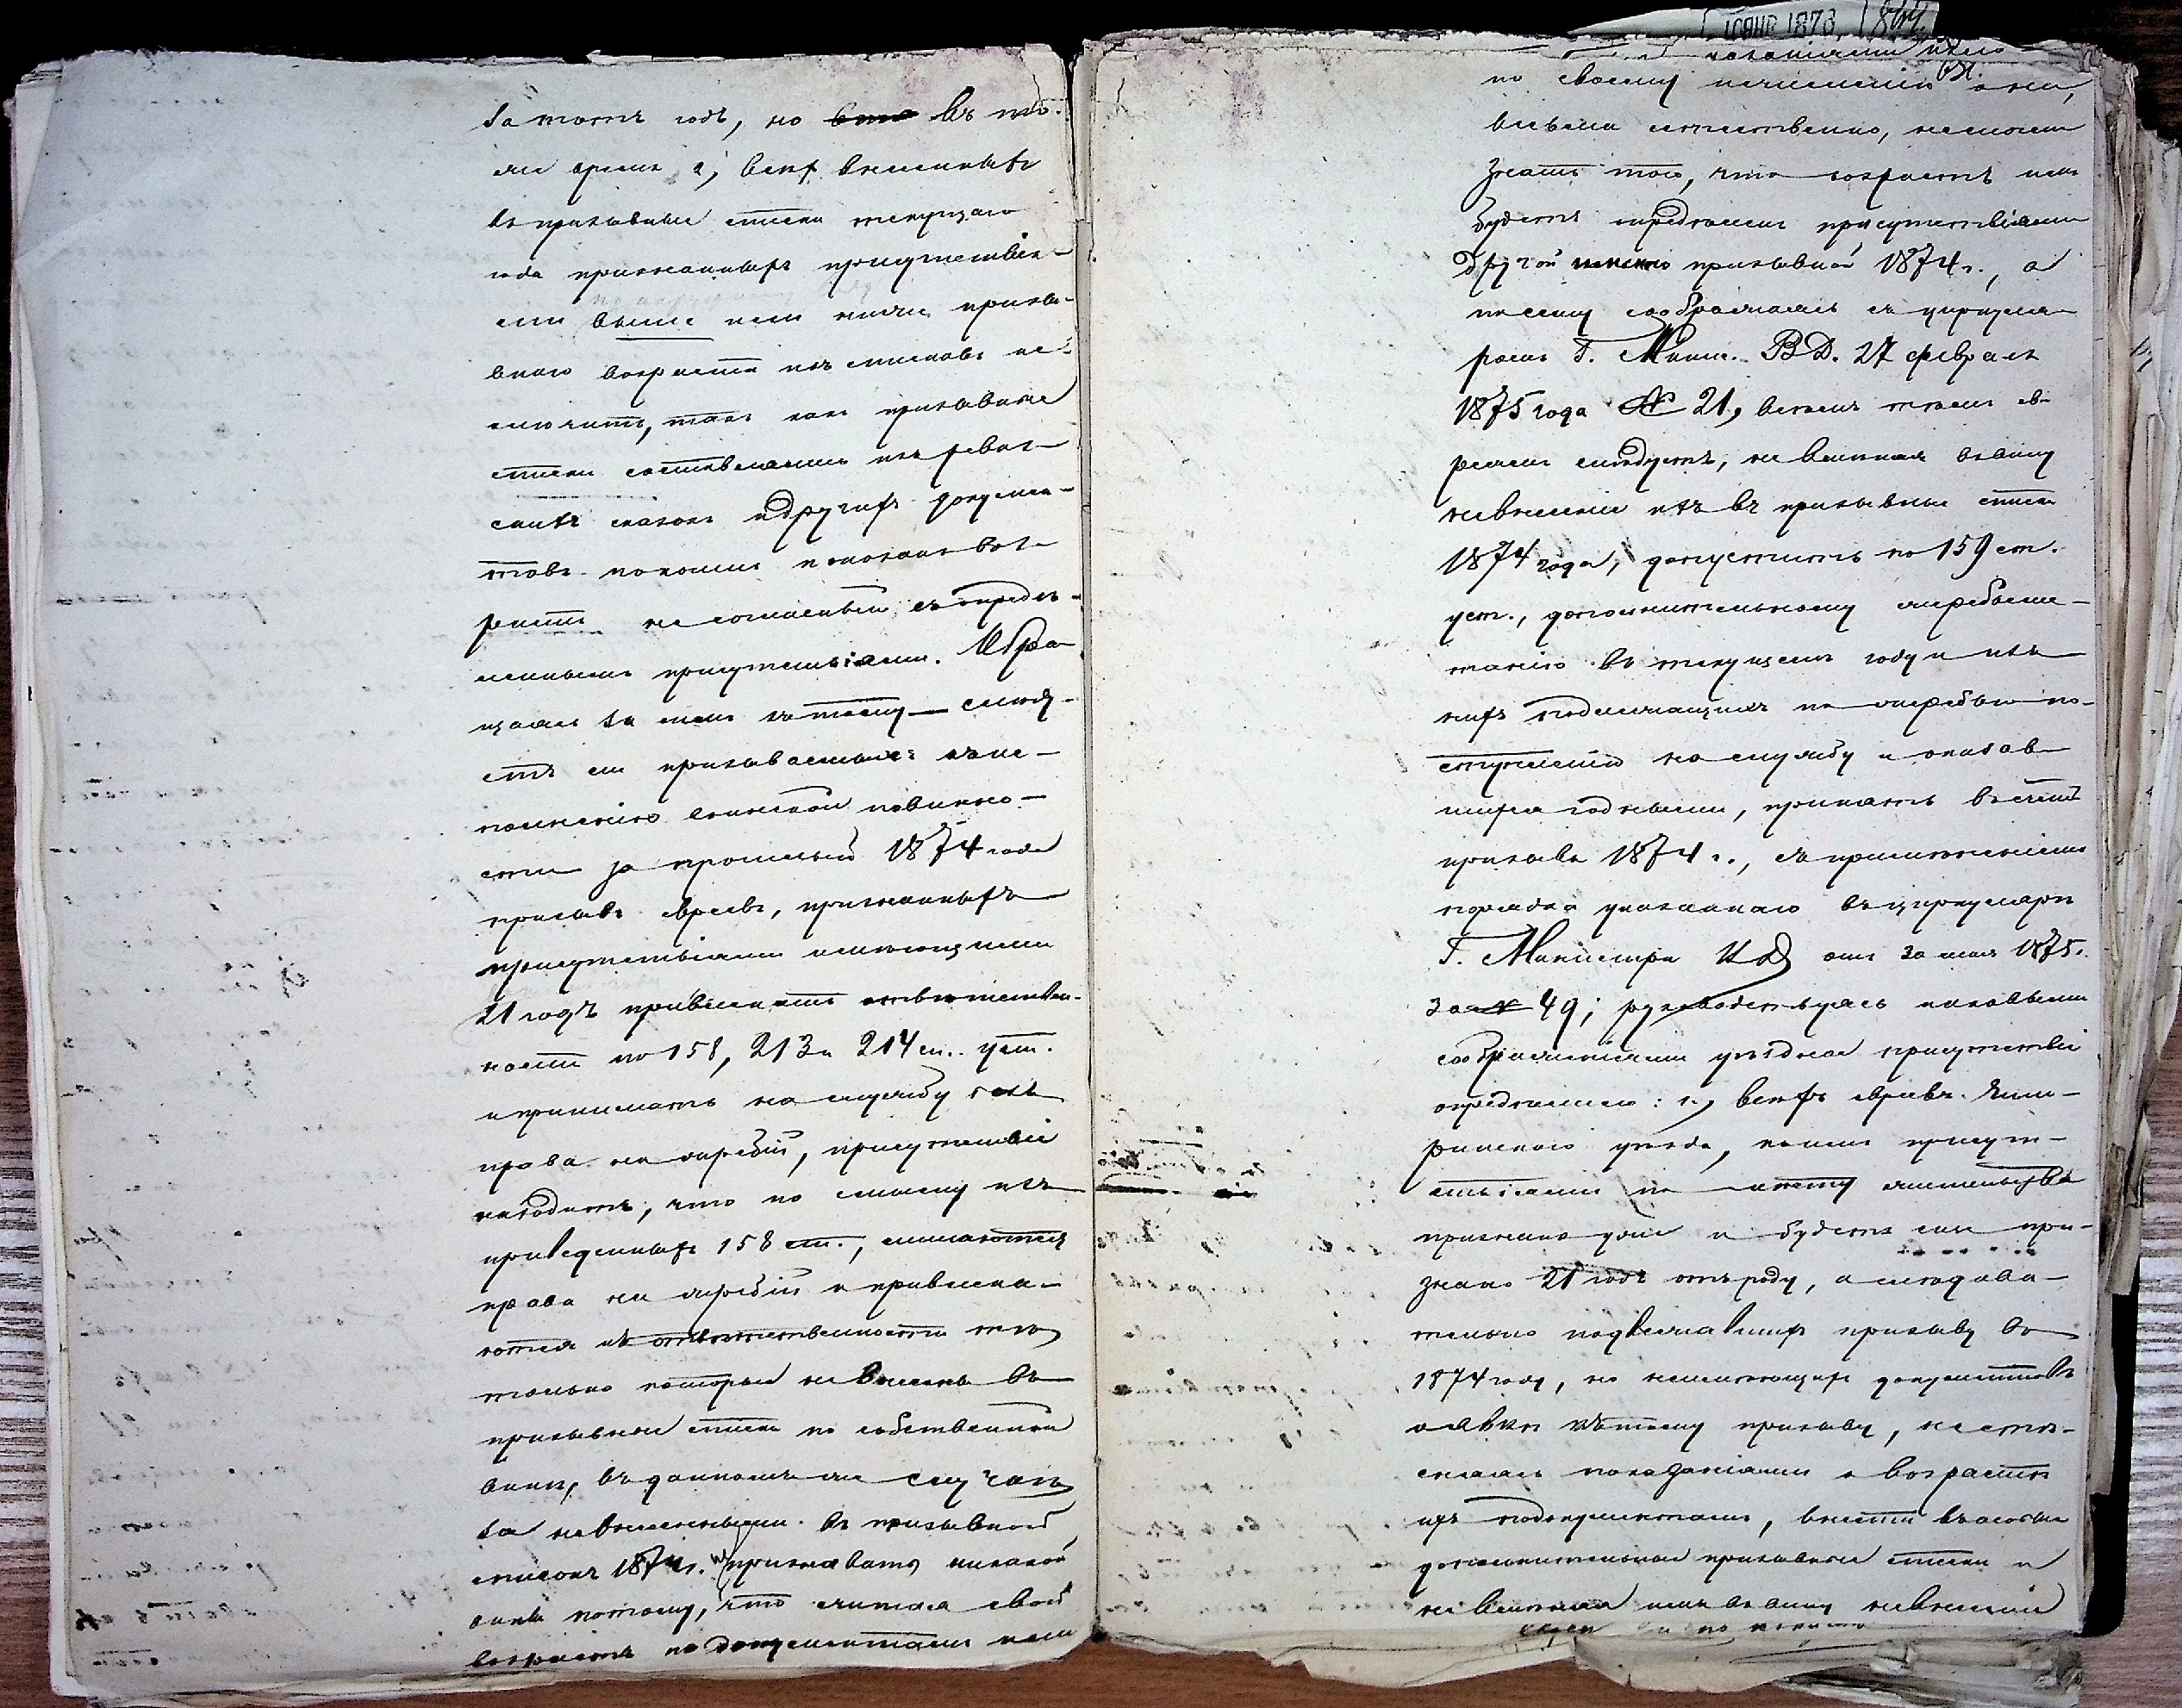 за тотъ годъ, но въ то-
же время 2, всѣхъ внесенныхъ
въ призывные списки текущаго
года признанныхъ присутствія-
ми выше или ниже призы-
внаго возраста изъ списковъ ис-
ключить, такъ какъ призывные
списки составлялись изъ реви-
скихъ сказокъ и другихъ докумен-
товъ по коимъ показанъ воз-
растъ не согласный съ опредѣ-
леннымъ присутствіями. Обра-
щаясь за симъ къ тому слѣду-
етъ ли призываемыхъ къ ис-
полненію воинской повинно-
сти за прошлый 1874 года
призывъ евреевъ, признанныхъ
присутствіями имѣющими
21 годъ привлекать отвѣтствен-
ности по 158, 213 и 214 ст. уст.
и принимать на службу безъ
права на жребій, присутствіе
находитъ, что по смыслу изъ
приведенныхъ 158 ст., лишаются
права на жребій и привлека-
ются къ отвѣтственности тѣ
только которые не внесены въ
призывные списки по собственной
винѣ, въ данномъ же случаѣ
за невнесенными въ призывной
списокъ 1874 г. признавать никакой
вины потому, что считая свой
возрастъ по документамъ или
по своему исчисленію они,
весьма естественно, не могли
знать того, что возрастъ ихъ
будетъ опредѣленъ присутствіями
другой призывной 1874 г., а
по сему соображаясь съ циркуля-
ромъ Г. Мин. ВД. 27 февраля
1875 года № 21, всѣмъ такимъ ев-
реямъ слѣдуетъ, не вмѣняя въ вину
невнесеніе ихъ въ призывные списки
1874 года, допустить по 159 ст.
уст., дополнительному жребьеме-
танію въ текущемъ году и изъ
нихъ подлежащихъ по жребью по-
ступленію на службу и оказав-
шихся годными, принять въ счетъ
призыва 1874 г., съ примѣненіемъ
порядка указаннаго въ циркулярѣ
Г. Министра ВД отъ 30 мая 1875 г.
за № 49; руководствуясь таковыми
соображеніями уѣздное присутствіе
опредѣлило: 1, всѣхъ евреевъ
уѣзда, коимъ присут-
ствіями по жительства
признано уже и будетъ еще при-
знано 21 годъ отъ роду, а слѣдова-
тельно подлежавшихъ призыву въ
1874 году, но неимѣющихъ документовъ
о явкѣ къ тому призыву, не стѣ-
сняясь показаніями о возрастѣ
ихъ по документамъ, внести въ особые
дополнительные призывные списки и
не вмѣняя имъ въ вину невнесенія